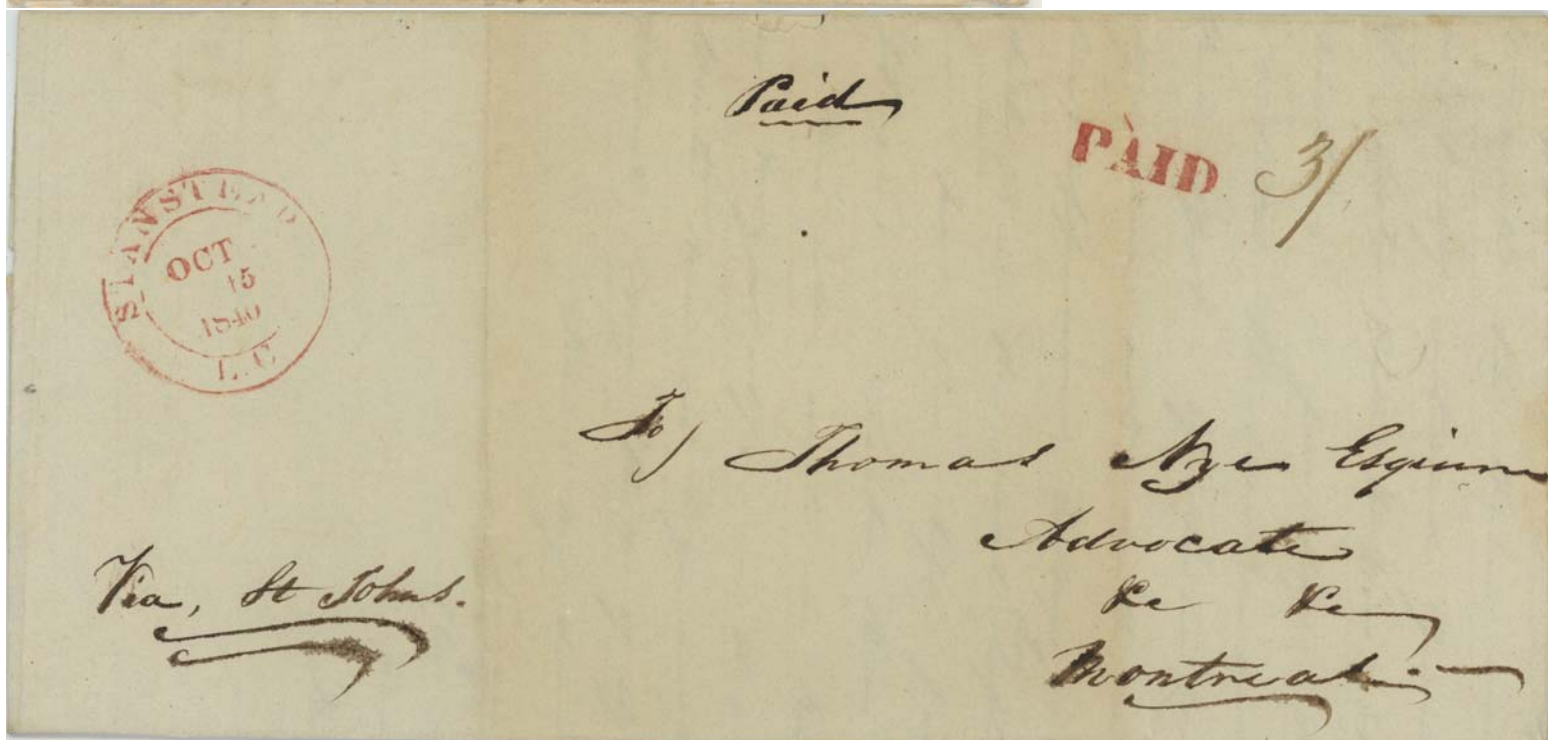 Paid
PAID 3/
STANSTEAD
OCT
15
1840
L.C
To/ Thomas Nye Esquire
Advocate
&c &c
Montreal.
Via, St Johns.